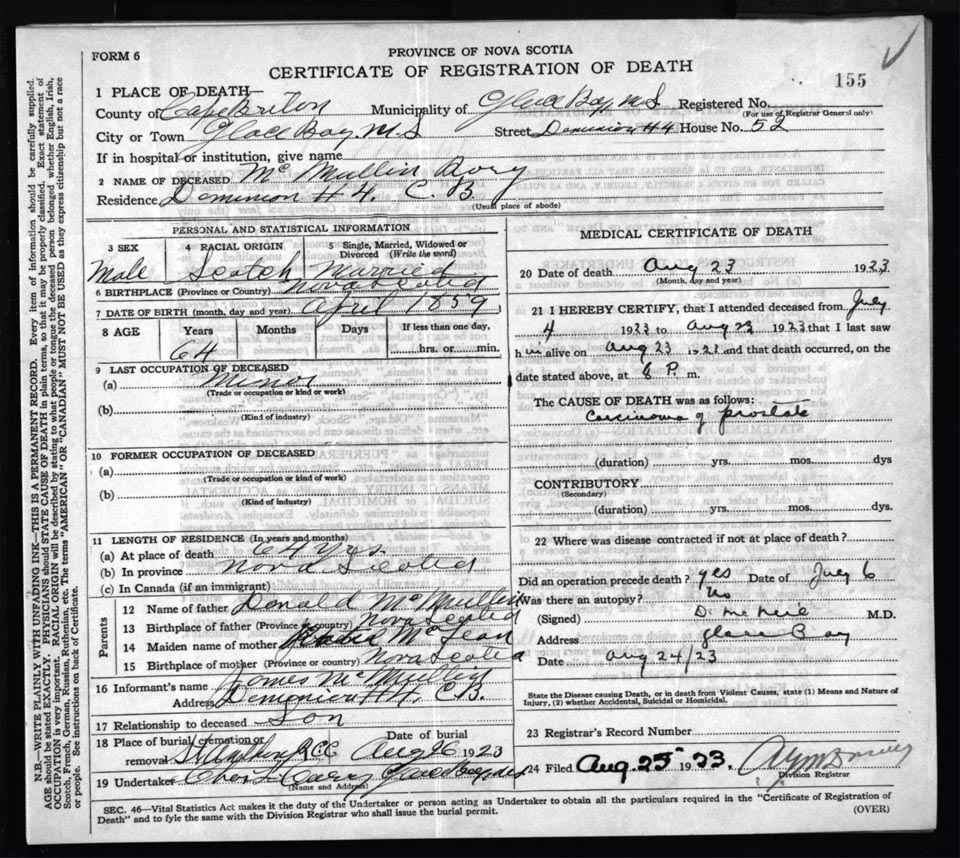 FORM 6
PROVINCE OF NOVA SCOTIA
CERTIFICATE OF REGISTRATION OF DEATH
155
1 PLACE OF DEATH—
County of Cape Breton Municipality of Glace Bay N.S. Registered No.
(For use of Registrar General only)
City or Town Glace Bay N.S Street Dominion #4 House No. 52
If in hospital or institution, give name
2 NAME OF DECEASED Mc Mullin Rory
Residence Dominion #4. C. B.
(Usual place of abode)
PERSONAL AND STATISTICAL INFORMATION
3 SEX 4 RACIAL ORIGIN 5 Single, Married, Widowed or Divorced (Write the word)
Male Scotch Married
6 BIRTHPLACE (Province or Country) Nova Scotia
7 DATE OF BIRTH (month, day and year) April 1859
8 AGE Years Months Days If less than one day,
64 hrs. or min.
9 LAST OCCUPATION OF DECEASED
(a) Miner
(Trade or occupation or kind or work)
(b)
(Kind of industry)
10 FORMER OCCUPATION OF DECEASED
(a)
(Trade or occupation or kind of work)
(b)
(Kind of Industry)
11 LENGTH OF RESIDENCE (In years and months)
(a) At place of death 64 yrs.
(b) In province Nova Scotia
(c) In Canada (if an immigrant)
Parents
12 Name of father Donald McMullin
13 Birthplace of father (Province or country) Nova Scotia
14 Maiden name of mother McLean
15 Birthplace of mother (Province or country) Nova Scotia
16 Informant's name James McMullin
Address Dominion #4, C.B.
17 Relationship to deceased Son
18 Place of burial, cremation or removal Date of burial
Aug 26 1923
19 Undertaker Glace Bay
(Name and Address)
MEDICAL CERTIFICATE OF DEATH
20 Date of death Aug 23 1923
(Month, day and year)
21 I HEREBY CERTIFY, that I attended deceased from July
4 1923 to Aug 23 1923 that I last saw
him alive on Aug 23 1923 and that death occurred, on the
date stated above, at P. m.
The CAUSE OF DEATH was as follows:
Carcinoma of prostate
(duration) yrs. mos. dys
CONTRIBUTORY
(Secondary)
(duration) yrs. mos. dys.
22 Where was disease contracted if not at place of death?
Did an operation precede death? yes Date of July 6
Was there an autopsy? No
(Signed) D. McNeil M.D.
Address Glace Bay
Date Aug 24/23
State the Disease causing Death, or in death from Violent Causes, state (1) Means and Nature of
Injury, (2) whether Accidental, Suicidal or Homicidal.
23 Registrar's Record Number
24 Filed Aug 25 1923.
Division Registrar
SEC. 46—Vital Statistics Act makes it the duty of the Undertaker or person acting as Undertaker to obtain all the particulars required in the "Certificate of Registration of
Death" and to fyle the same with the Division Registrar who shall issue the burial permit.
(OVER)
N.B.—WRITE PLAINLY WITH UNFADING INK—THIS IS A PERMANENT RECORD. Every item of information should be carefully supplied.
AGE should be stated EXACTLY. PHYSICIANS should STATE CAUSE OF DEATH in plain terms, so that it may be properly classified. Exact statement of
OCCUPATION is very important. RACIAL ORIGIN will be described by stating to what people or tongue the deceased person belonged whether English, Irish,
Scotch, French, German, Russian, Ruthenian, etc. The terms "AMERICAN" OR "CANADIAN" MUST NOT BE USED as they express citizenship but not a race
or people. See instructions on back of Certificate.